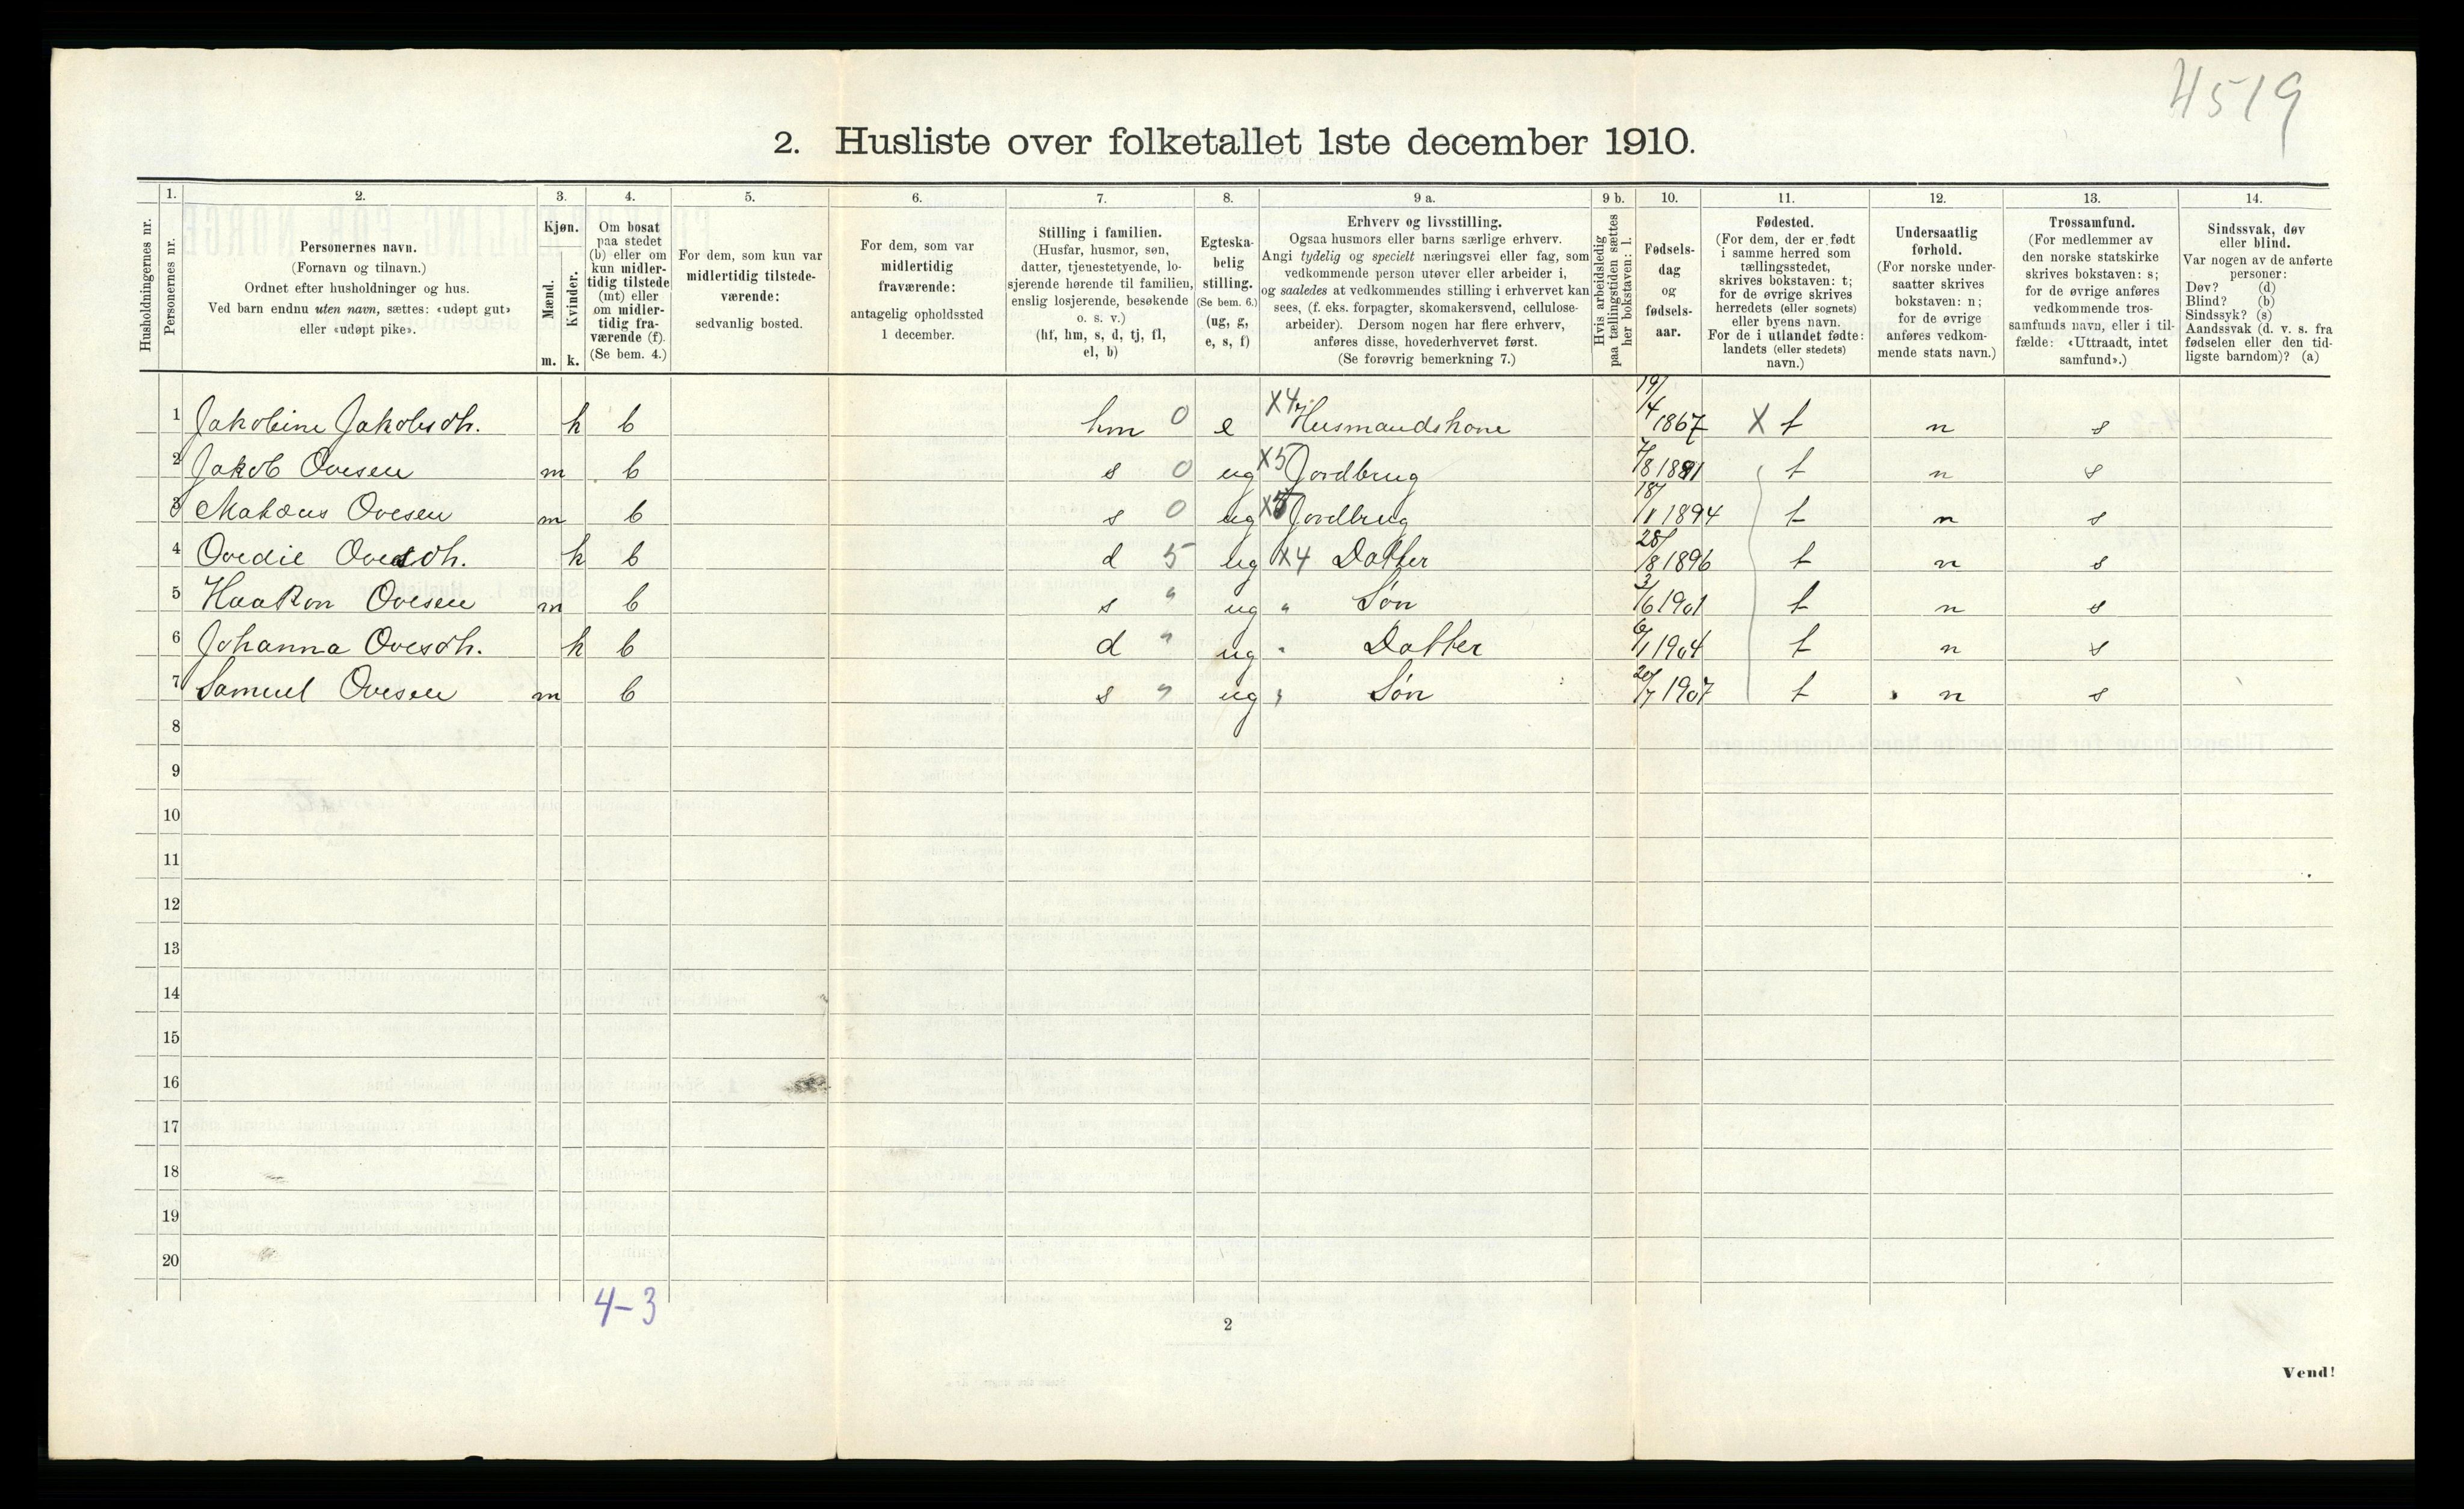 4519
2. Husliste over folketallet 1ste december 1910.
Husholdningernes nr.
1. Personernes nr.
2. Personernes navn.
(Fornavn og tilnavn.)
Ordnet efter husholdninger og hus.
Ved barn endnu uten navn, sættes: «udøpt gut»
eller «udøpt pike».
3. Kjøn.
Mænd. m.
Kvinder. k.
4. Om bosat
paa stedet
(b) eller om
kun midler-
tidig tilstede
(mt) eller
om midler-
tidig fra-
værende (f).
(Se bem. 4.)
5. For dem, som kun var
midlertidig tilstede-
værende:
sedvanlig bosted.
6. For dem, som var
midlertidig
fraværende:
antagelig opholdssted
1 december.
7. Stilling i familien.
(Husfar, husmor, søn,
datter, tjenestetyende, lo-
sjerende hørende til familien,
enslig losjerende, besøkende
o. s. v.)
(hf, hm, s, d, tj, fl,
el, b)
8. Egteska-
belig
stilling.
(Se bem. 6.)
(ug, g,
e, s, f)
9 a. Erhverv og livsstilling.
Ogsaa husmors eller barns særlige erhverv.
Angi tydelig og specielt næringsvei eller fag, som
vedkommende person utøver eller arbeider i,
og saaledes at vedkommendes stilling i erhvervet kan
sees, (f. eks. forpagter, skomakersvend, cellulose-
arbeider). Dersom nogen har flere erhverv,
anføres disse, hovederhvervet først.
(Se forøvrig bemerkning 7.)
9 b. Hvis arbeidsledig
paa tællingstiden sættes
her bokstaven: l.
10. Fødsels-
dag
og
fødsels-
aar.
11. Fødested.
(For dem, der er født
i samme herred som
tællingsstedet,
skrives bokstaven: t;
for de øvrige skrives
herredets (eller sognets)
eller byens navn.
For de i utlandet fødte:
landets (eller stedets)
navn.)
12. Undersaatlig
forhold.
(For norske under-
saatter skrives
bokstaven: n;
for de øvrige
anføres vedkom-
mende stats navn.)
13. Trossamfund.
(For medlemmer av
den norske statskirke
skrives bokstaven: s;
for de øvrige anføres
vedkommende tros-
samfunds navn, eller i til-
fælde: «Uttraadt, intet
samfund».)
14. Sindssvak, døv
eller blind.
Var nogen av de anførte
personer:
Døv? (d)
Blind? (b)
Sindssyk? (s)
Aandssvak (d. v. s. fra
fødselen eller den tid-
ligste barndom)? (a)
1 Jakobine Jakobsdh. k b hm 0 e X4 Husmandskone 19/4 1867 X t n s
2 Jakob Ovesen m b s 0 ug X5 Jordbrug 7/8 1891 t n s
3 Matæus Ovesen m b s 0 ug X5 Jordbrug 18/1 1894 t n s
4 Ovedie Ovesdh. k b d 5 ug X4 Datter 28/8 1896 t n s
5 Haakon Ovesen m b s " ug " Søn 3/6 1901 t n s
6 Johanna Ovesdh. k b d " ug " Datter 6/1 1904 t n s
7 Samuel Ovesen m b s " ug " Søn 20/7 1907 t n s
8
9
10
11
12
13
14
15
16
17
18
19
20
4-3
2
Vend!